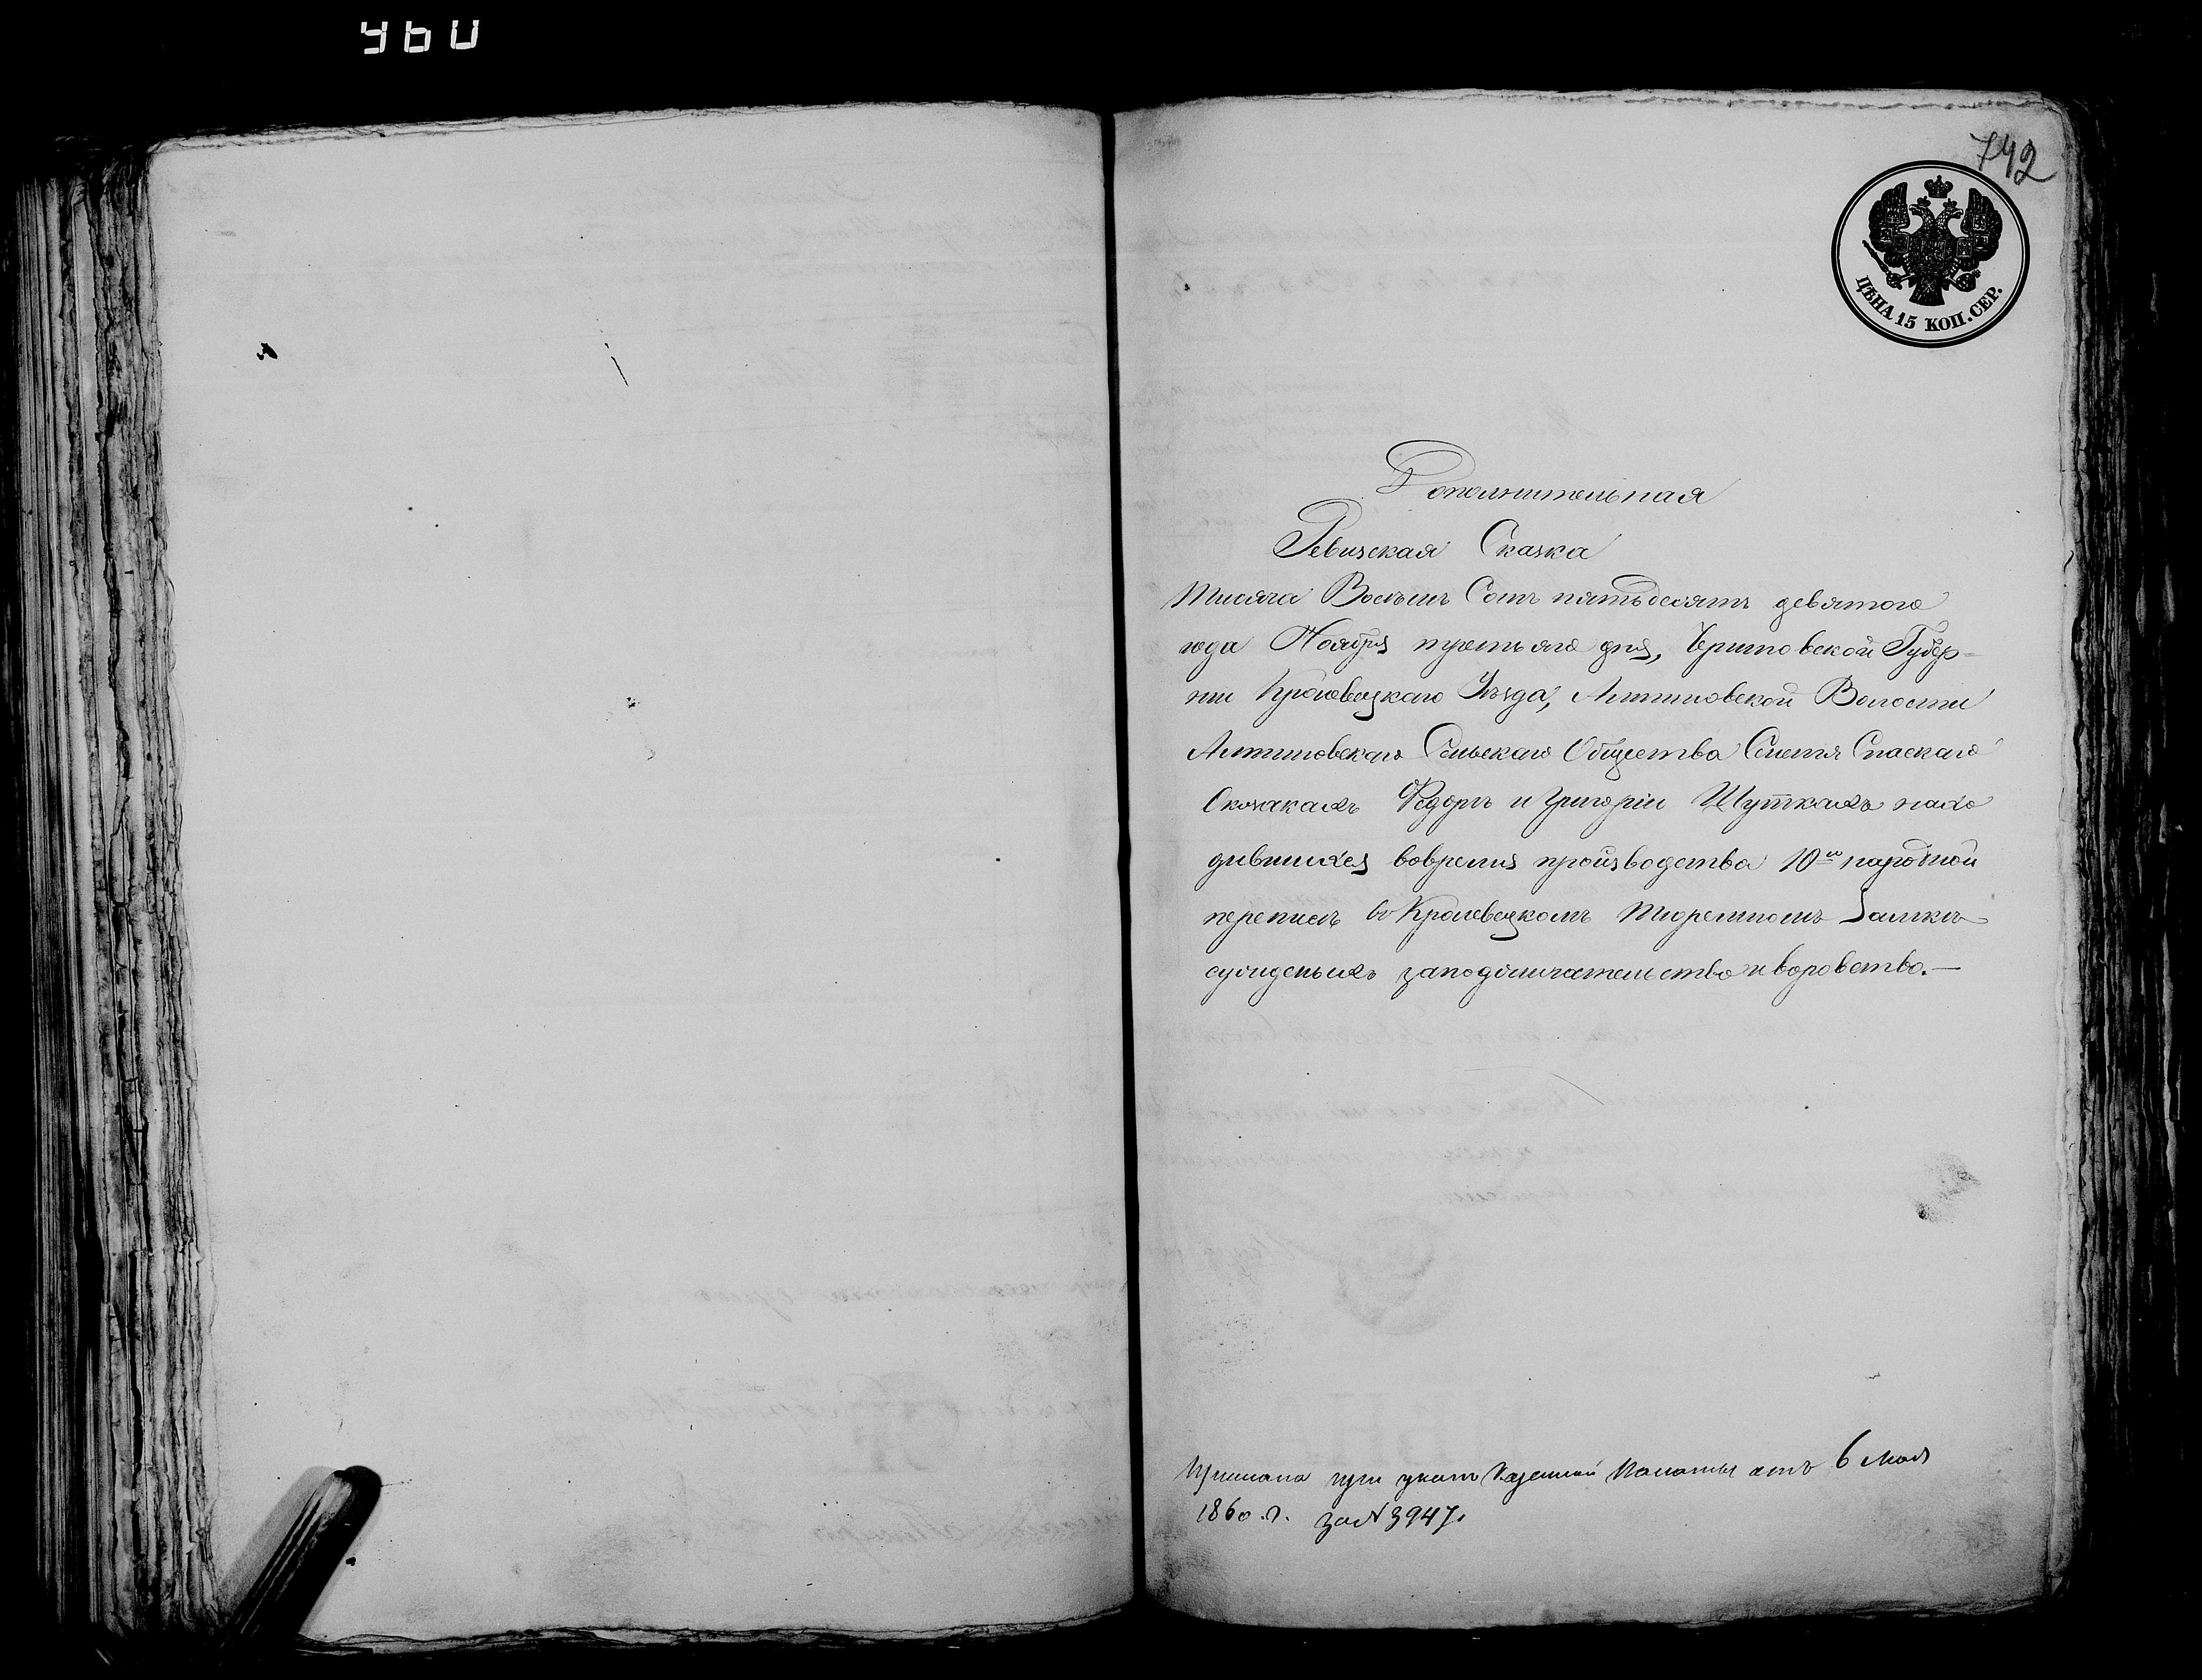 460
742
ЦѢНА 15 КОП. СЕР.
Дополнительная
Ревизская Сказка
Тысяча Восемь Сотъ пятьдесятъ девятого
года Ноября третьяго дня, Черниговской Губер-
ніи Кролевецкаго Уѣзда, Алтиновской Волости
Алтиновскаго Сельскаго Общества Спаскаго
Окозакахъ Федорѣ и Григоріи Шуткахъ нахо
дившихся вовремя производства 10й народной
переписѣ въ Кролевецкомъ Тюремномъ Замкѣ
сужденыхъ заподжигательство и воровство.—
Прислана при указѣ Казенной Палаты отъ 6 Мая
1860 .г. за N 3947.